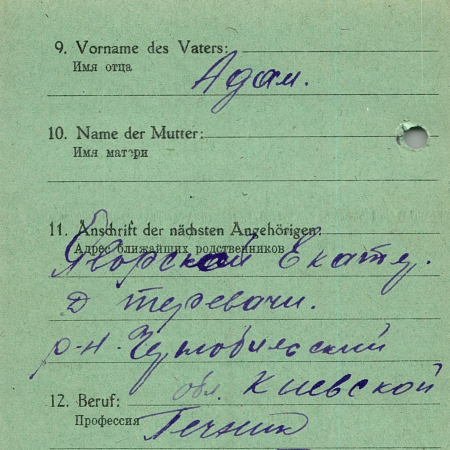 9. Vorname des Vaters:
Имя отца
Адам.
10. Name der Mutter:
Имя матери
11. Anschrift der nächsten Angehörigen:
Адрес ближайших родственников
Яворской Екате.
д теревачи.
р-н. Чернобильский
обл. Киевской
12. Beruf:
Профессия
Течник